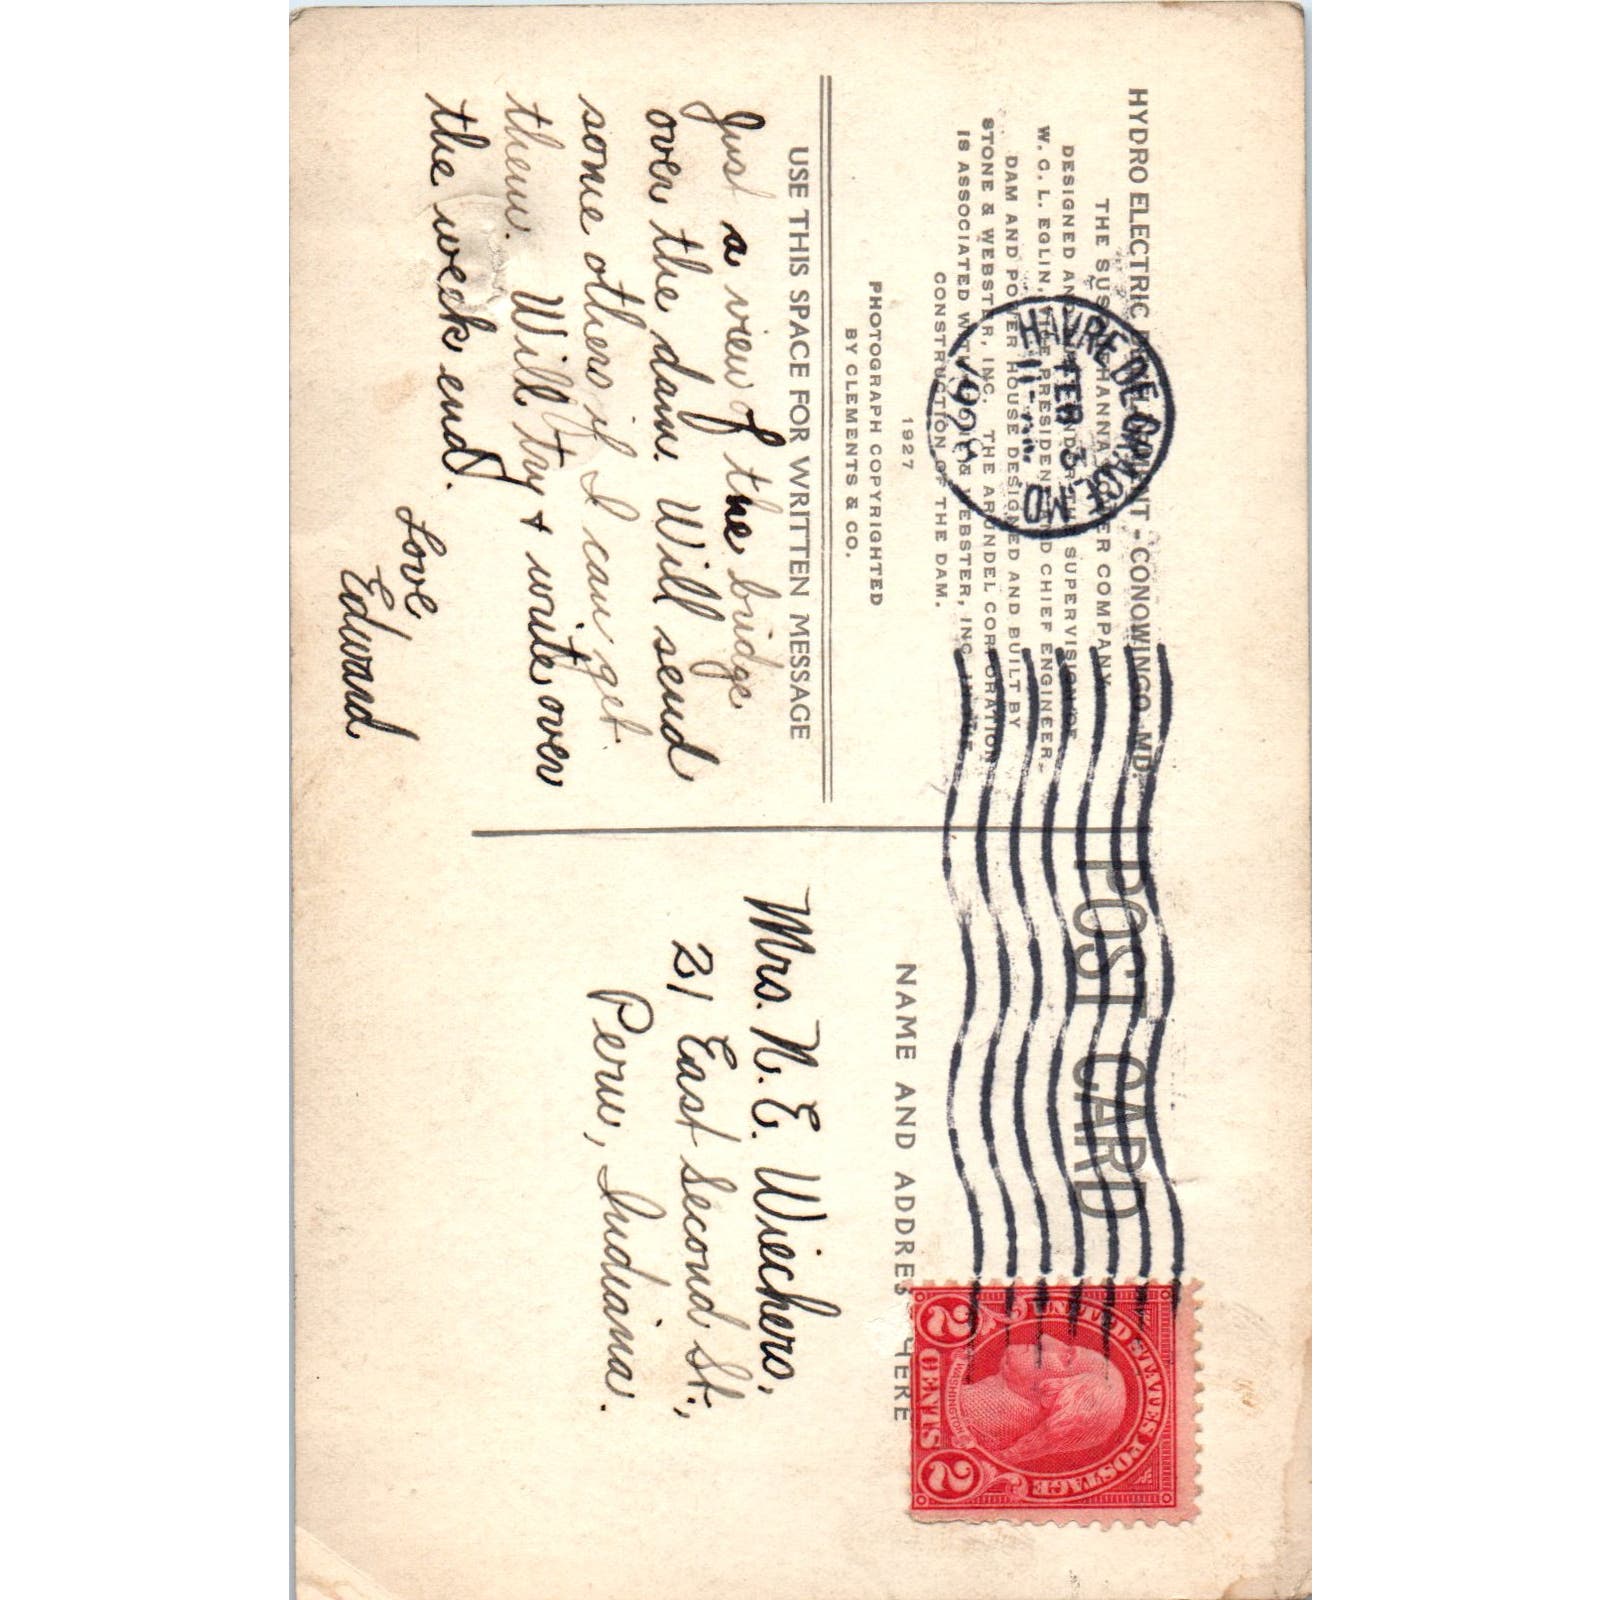 HYDRO ELECTRIC DEVELOPMENT - CONOWINGO, MD.
THE SUSQUEHANNA POWER COMPANY.
DESIGNED AND UNDER THE SUPERVISION OF
W. C. L. EGLIN, VICE PRESIDENT AND CHIEF ENGINEER.
DAM AND POWER HOUSE DESIGNED AND BUILT BY
STONE & WEBSTER, INC. THE ARUNDEL CORPORATION
IS ASSOCIATED WITH STONE & WEBSTER, INC. IN THE
CONSTRUCTION OF THE DAM.
1927
PHOTOGRAPH COPYRIGHTED
BY CLEMENTS & CO.
USE THIS SPACE FOR WRITTEN MESSAGE
Just a view of the bridge
over the dam. Will send
some others if I can get
them. Will try & write over
the week end.
Love
Edward
HAVRE DE GRACE, MD.
FEB 3
11
1928
POST CARD
NAME AND ADDRESS HERE
Mrs. N. E. Wiechers,
21 East Second St.,
Peru, Indiana.
UNITED STATES POSTAGE
WASHINGTON
2 CENTS 2